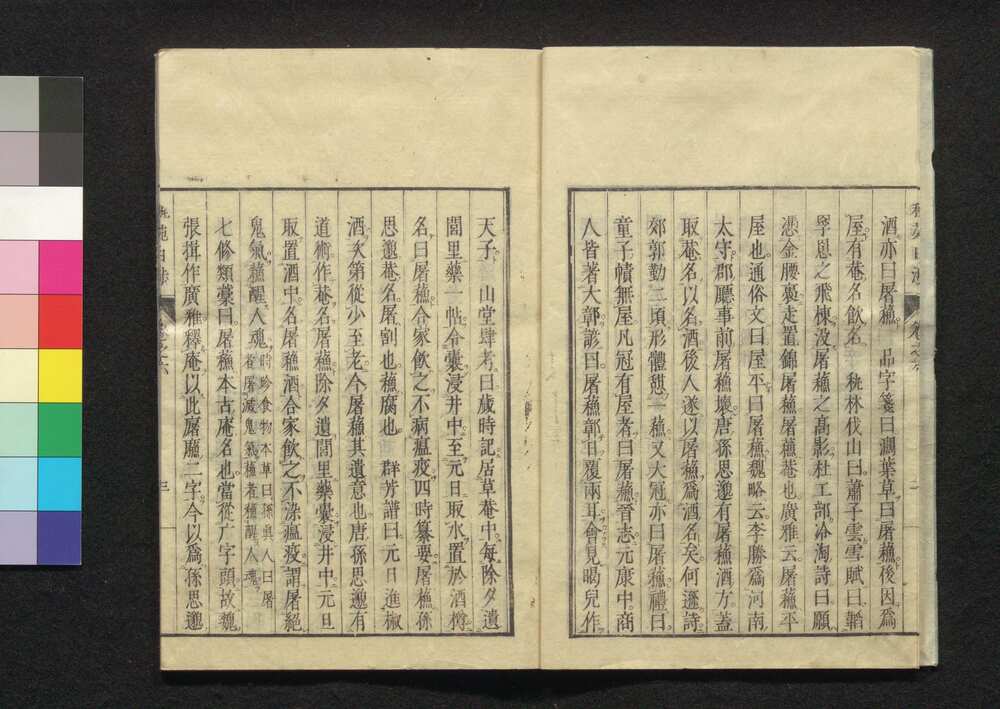 酒亦曰屠蘓 品字箋曰濶葉草曰屠蘓後因爲
屋有菴名飮名 秇林伐山曰蕭子雲雪賦曰韜
罘罳之飛棟没屠蘓之髙影杜工部冷淘詩曰願
憑金腰褭走置錦屠蘓屠蘓菴也廣雅云屠蘓平
屋也通俗文曰屋平曰屠蘓魏略云李勝爲河南
太守郡廳事前屠蘓壞唐孫思邈有屠蘓酒方蓋
取菴名以名酒後人遂以屠蘓爲酒名矣何遜詩
郊郭勤二頃形體憇一蘓又大冠亦曰屠蘓禮曰
童子幘無屋凡冠有屋者曰屠蘓晉志元康中商
人皆著大鄣諺曰屠蘓鄣日覆兩耳會見瞎兒作
天子 山堂肆考曰歲時記居草菴中每除夕遺
閭里藥一帖令囊浸井中至元日取水置於酒樽
名曰屠蘓合家飮之不病瘟疫四時纂要屠蘓孫
思邈菴名屠割也蘓腐也 群芳譜曰元日進椒
酒次第從少至老今屠蘓其遺意也唐孫思邈有
道術作菴名屠蘓除夕遺閭里藥囊浸井中元旦
取置酒中名屠蘓酒合家飮之不染瘟疫謂屠絕
鬼氣蘓醒人魂 時珍食物本草曰孫眞人曰屠者屠滅鬼氣蘓者蘓醒人魂
七修類藁曰屠蘓本古庵名也當從广字頭故魏
張揖作廣雅釋庵以此廜㢝二字今以爲孫思邈